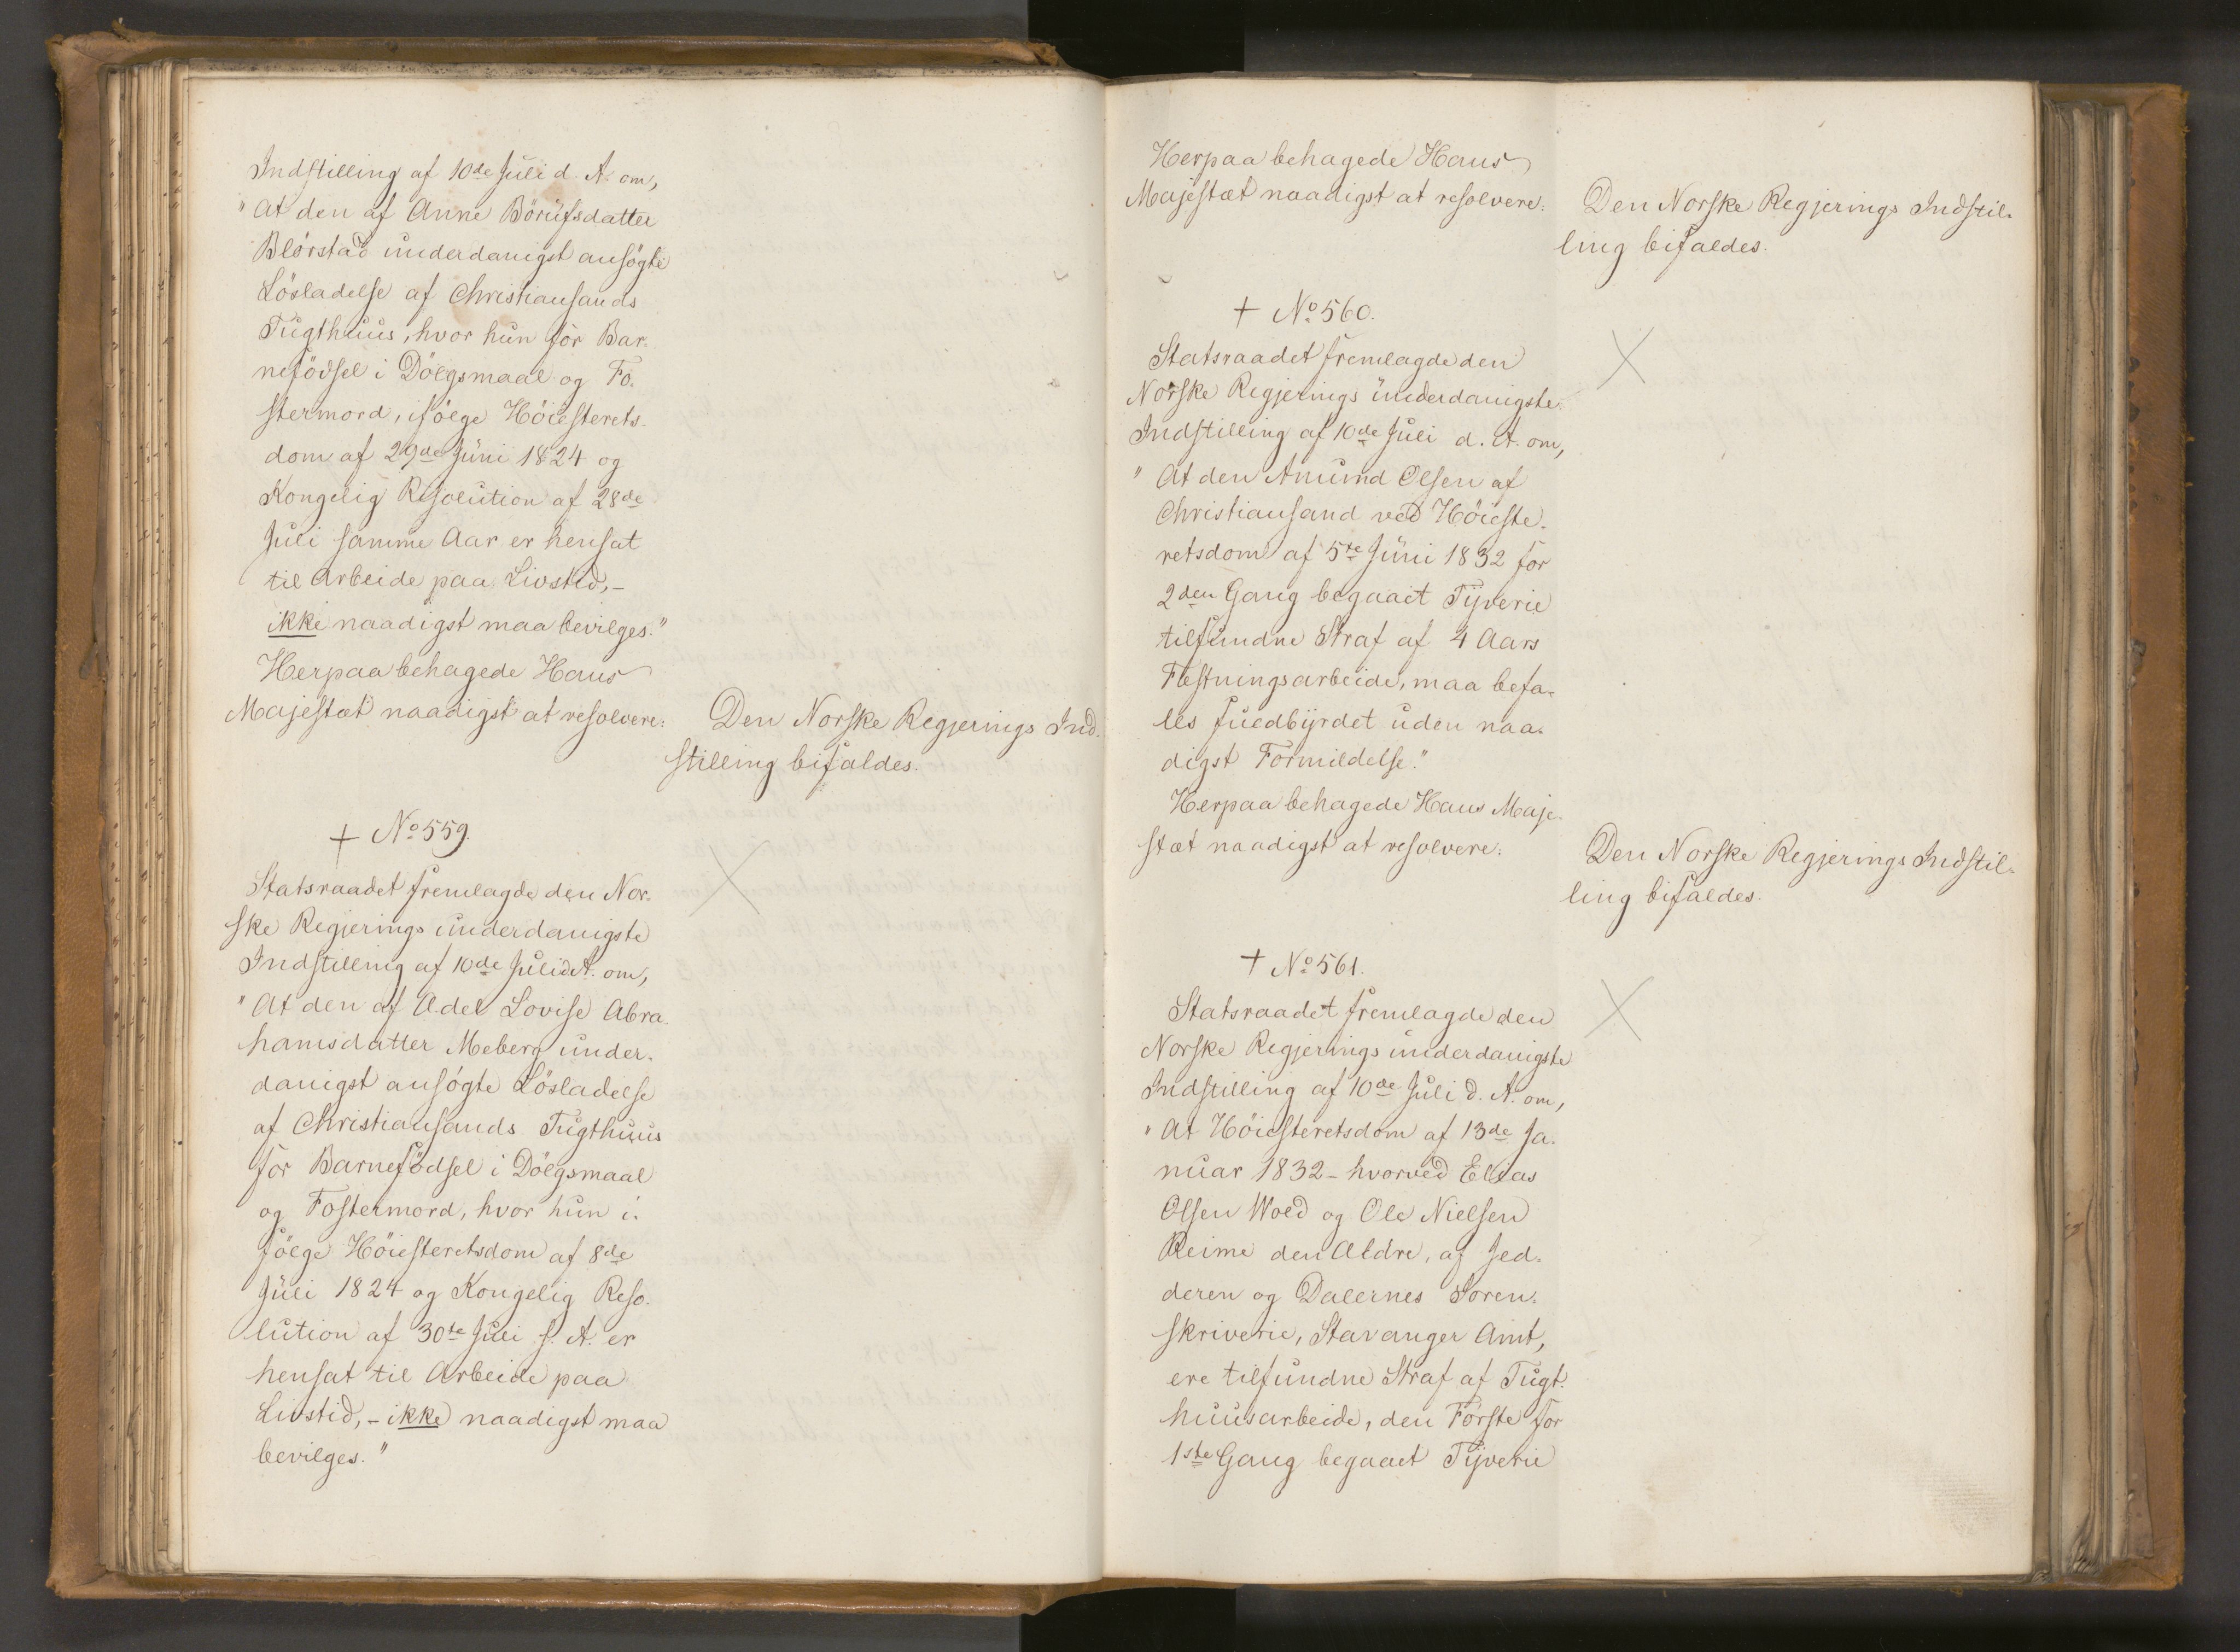 Indstilling af 10de Juli d. A. om,
"At den af Anne Börufsdatter
Blörstad underdanigst ansögte
Lösladelse af Christiansands
Tugthuus, hvor hun for Bar-
nefödsel i Dölgsmaal og Fo-
stermord, ifölge Höiesterets-
dom af 29de Juni 1824 og
Kongelig Resolution af 28de
Juli samme Aar er hensat
til Arbeide paa Livstid, -
ikke naadigst maa bevilges."
Herpaa behagede Hans
Majestæt naadigst at resolvere:
Den Norske Regjerings Ind-
stilling bifaldes.
+ No 559.
Statsraadet fremlagde den Nor-
ske Regjerings underdanigste
Indstilling af 10de Juli d. A. om,
"At den af Adel Lovise Abra-
hamsdatter Meberg under-
danigst ansögte Lösladelse
af Christiansands Tugthuus
for Barnefödsel i Dölgsmaal
og Fostermord, hvor hun i-
fölge Höiesteretsdom af 8de
Juli 1824 og Kongelig Reso-
lution af 30te Juli s. A. er
hensat til Arbeide paa
Livstid, - ikke naadigst maa
bevilges."
Herpaa behagede Hans
Majestæt naadigst at resolvere:
Den Norske Regjerings Indstil-
ling bifaldes.
+ No 560.
Statsraadet fremlagde den
Norske Regjerings underdanigste
Indstilling af 10de Juli d. A. om,
"At den Amund Olsen af
Christiansand ved Höieste-
retsdom af 5te Juni 1832 for
2den Gang begaaet Tyverie
tilfundne Straf af 4 Aars
Fæstningsarbeide, maa befa-
les fuldbyrdet uden naa-
digst Formildelse."
Herpaa behagede Hans Maje-
stæt naadigst at resolvere:
Den Norske Regjerings Indstil-
ling bifaldes.
+ No 561.
Statsraadet fremlagde den
Norske Regjerings underdanigste
Indstilling af 10de Juli d. A. om,
"At Höiesteretsdom af 13de Ja-
nuar 1832 - hvorved Elias
Olsen Wold og Ole Nielsen
Reime den Ældre, af Jed-
deren og Dalernes Soren-
skriverie, Stavanger Amt,
ere tilfundne Straf af Tugt-
huusarbeide, den Förste for
1ste Gang begaaet Tyverie